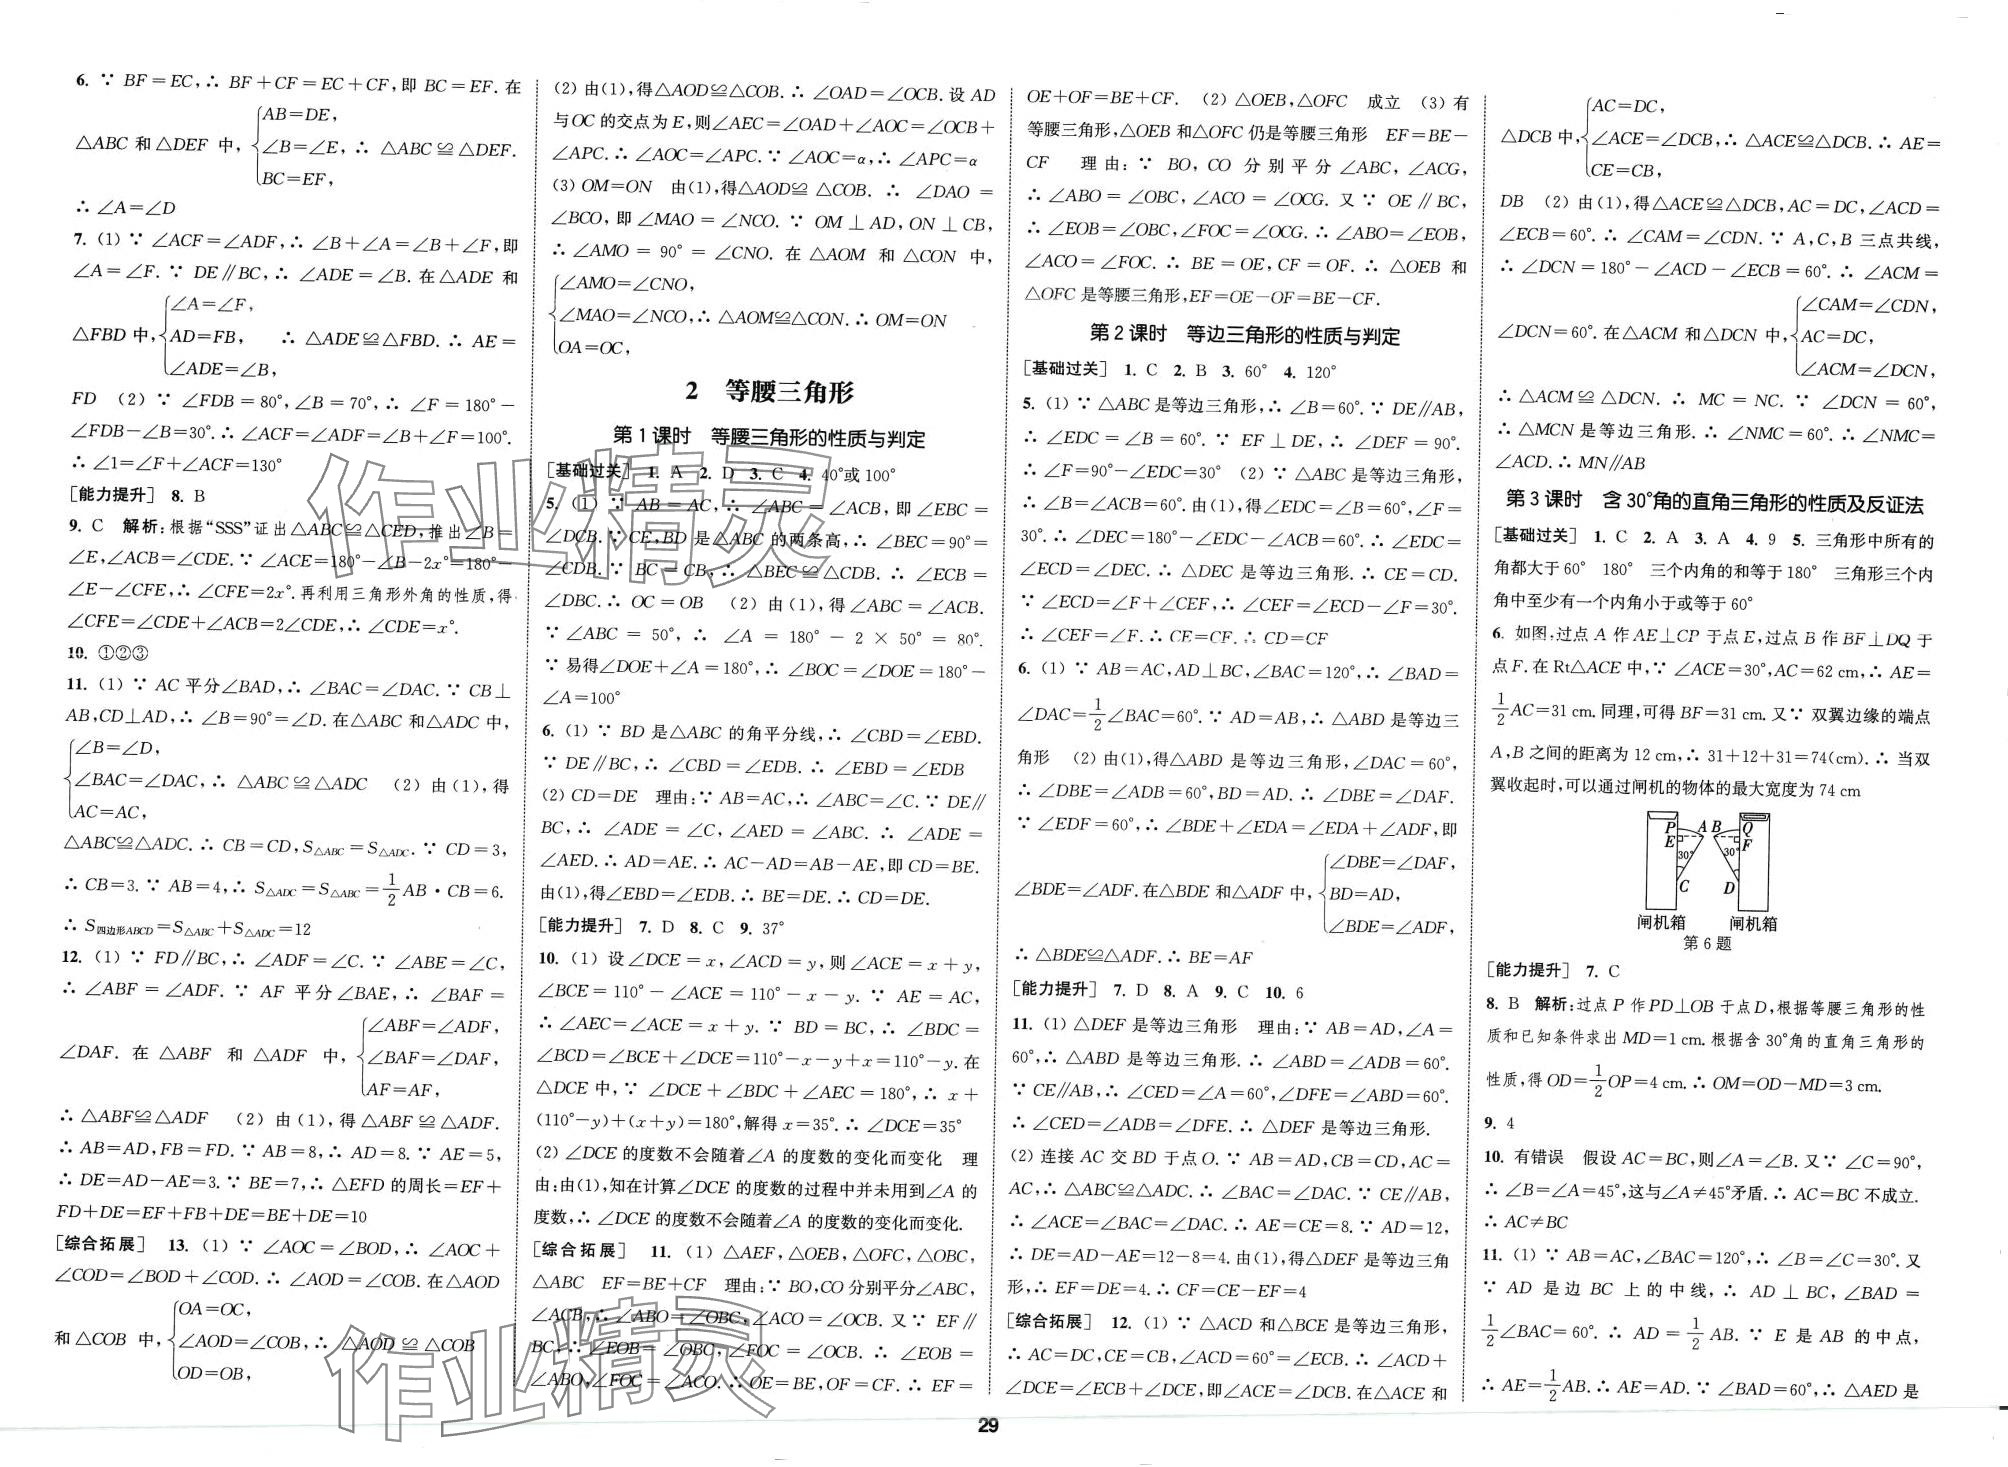 6. ∵ BF=EC,∴ BF+CF=EC+CF,即 BC=EF.在
△ABC 和△DEF 中,{AB=DE, ∠B=∠E, BC=EF, ∴ △ABC≌△DEF.
∴ ∠A=∠D
7. (1) ∵ ∠ACF=∠ADF,∴ ∠B+∠A=∠B+∠F,即
∠A=∠F.∵ DE∥BC,∴ ∠ADE=∠B.在△ADE 和
△FBD 中,{∠A=∠F, AD=FB, ∠ADE=∠B, ∴ △ADE≌△FBD.∴ AE=
FD (2) ∵ ∠FDB=80°,∠B=70°,∴ ∠F=180°-
∠FDB-∠B=30°.∴ ∠ACF=∠ADF=∠B+∠F=100°.
∴ ∠1=∠F+∠ACF=130°
[能力提升] 8. B
9. C 解析:根据“SSS”证出△ABC≌△CED,推出∠B=
∠E,∠ACB=∠CDE.∵ ∠ACE=180°-∠B-2x°=180°-
∠E-∠CFE,∴ ∠CFE=2x°.再利用三角形外角的性质,得
∠CFE=∠CDE+∠ACB=2∠CDE,∴ ∠CDE=x°.
10. ①②③
11. (1) ∵ AC 平分∠BAD,∴ ∠BAC=∠DAC.∵ CB⊥
AB,CD⊥AD,∴ ∠B=90°=∠D.在△ABC 和△ADC 中,
{∠B=∠D, ∠BAC=∠DAC, AC=AC, ∴ △ABC≌△ADC (2) 由(1),得
△ABC≌△ADC.∴ CB=CD,S△ABC=S△ADC.∵ CD=3,
∴ CB=3.∵ AB=4,∴ S△ADC=S△ABC=1/2AB·CB=6.
∴ S四边形ABCD=S△ABC+S△ADC=12
12. (1) ∵ FD∥BC,∴ ∠ADF=∠C.∵ ∠ABE=∠C,
∴ ∠ABF=∠ADF.∵ AF 平分∠BAE,∴ ∠BAF=
∠DAF.在△ABF 和△ADF 中,{∠ABF=∠ADF, ∠BAF=∠DAF, AF=AF,
∴ △ABF≌△ADF (2) 由(1),得△ABF≌△ADF.
∴ AB=AD,FB=FD.∵ AB=8,∴ AD=8.∵ AE=5,
∴ DE=AD-AE=3.∵ BE=7,∴ △EFD 的周长=EF+
FD+DE=EF+FB+DE=BE+DE=10
[综合拓展] 13. (1) ∵ ∠AOC=∠BOD,∴ ∠AOC+
∠COD=∠BOD+∠COD.∴ ∠AOD=∠COB.在△AOD
和△COB 中,{OA=OC, ∠AOD=∠COB, OD=OB, ∴ △AOD≌△COB
(2) 由(1),得△AOD≌△COB.∴ ∠OAD=∠OCB.设 AD
与OC 的交点为E,则∠AEC=∠OAD+∠AOC=∠OCB+
∠APC.∴ ∠AOC=∠APC.∵ ∠AOC=α,∴ ∠APC=α
(3) OM=ON 由(1),得△AOD≌△COB.∴ ∠DAO=
∠BCO,即∠MAO=∠NCO.∵ OM⊥AD,ON⊥CB,
∴ ∠AMO=90°=∠CNO.在△AOM 和△CON 中,
{∠AMO=∠CNO, ∠MAO=∠NCO, OA=OC, ∴ △AOM≌△CON.∴ OM=ON
2 等腰三角形
第 1 课时 等腰三角形的性质与判定
[基础过关] 1. A 2. D 3. C 4. 40°或100°
5. (1) ∵ AB=AC,∴ ∠ABC=∠ACB,即∠EBC=
∠DCB.∵ CE,BD 是△ABC 的两条高,∴ ∠BEC=90°=
∠CDB.∵ BC=CB,∴ △BEC≌△CDB.∴ ∠ECB=
∠DBC.∴ OC=OB (2) 由(1),得∠ABC=∠ACB.
∵ ∠ABC=50°,∴ ∠A=180°-2×50°=80°.
∵ 易得∠DOE+∠A=180°,∴ ∠BOC=∠DOE=180°-
∠A=100°
6. (1) ∵ BD 是△ABC 的角平分线,∴ ∠CBD=∠EBD.
∵ DE∥BC,∴ ∠CBD=∠EDB.∴ ∠EBD=∠EDB
(2) CD=DE 理由:∵ AB=AC,∴ ∠ABC=∠C.∵ DE∥
BC,∴ ∠ADE=∠C,∠AED=∠ABC.∴ ∠ADE=
∠AED.∴ AD=AE.∴ AC-AD=AB-AE,即CD=BE.
由(1),得∠EBD=∠EDB.∴ BE=DE.∴ CD=DE.
[能力提升] 7. D 8. C 9. 37°
10. (1) 设∠DCE=x,∠ACD=y,则∠ACE=x+y,
∠BCE=110°-∠ACE=110°-x-y.∵ AE=AC,
∴ ∠AEC=∠ACE=x+y.∵ BD=BC,∴ ∠BDC=
∠BCD=∠BCE+∠DCE=110°-x-y+x=110°-y.在
△DCE 中,∵ ∠DCE+∠BDC+∠AEC=180°,∴ x+
(110°-y)+(x+y)=180°,解得x=35°.∴ ∠DCE=35°
(2) ∠DCE 的度数不会随着∠A 的度数的变化而变化 理
由:由(1),知在计算∠DCE 的度数的过程中并未用到∠A 的
度数,∴ ∠DCE 的度数不会随着∠A 的度数的变化而变化.
[综合拓展] 11. (1) △AEF,△OEB,△OFC,△OBC,
△ABC EF=BE+CF 理由:∵ BO,CO 分别平分∠ABC,
∠ACB,∴ ∠ABO=∠OBC,∠ACO=∠OCB.又∵ EF∥
BC,∴ ∠EOB=∠OBC,∠FOC=∠OCB.∴ ∠EOB=
∠ABO,∠FOC=∠ACO.∴ OE=BE,OF=CF.∴ EF=
OE+OF=BE+CF. (2) △OEB,△OFC 成立 (3) 有
等腰三角形,△OEB 和△OFC 仍是等腰三角形 EF=BE-
CF 理由:∵ BO,CO 分别平分∠ABC,∠ACG,
∴ ∠ABO=∠OBC,∠ACO=∠OCG.又∵ OE∥BC,
∴ ∠EOB=∠OBC,∠FOC=∠OCG.∴ ∠ABO=∠EOB,
∠ACO=∠FOC.∴ BE=OE,CF=OF.∴ △OEB 和
△OFC 是等腰三角形,EF=OE-OF=BE-CF.
第 2 课时 等边三角形的性质与判定
[基础过关] 1. C 2. B 3. 60° 4. 120°
5. (1) ∵ △ABC 是等边三角形,∴ ∠B=60°.∵ DE∥AB,
∴ ∠EDC=∠B=60°.∵ EF⊥DE,∴ ∠DEF=90°.
∴ ∠F=90°-∠EDC=30° (2) ∵ △ABC 是等边三角形,
∴ ∠B=∠ACB=60°.由(1),得∠EDC=∠B=60°,∠F=
30°.∴ ∠DEC=180°-∠EDC-∠ACB=60°.∴ ∠EDC=
∠ECD=∠DEC.∴ △DEC 是等边三角形.∴ CE=CD.
∵ ∠ECD=∠F+∠CEF,∴ ∠CEF=∠ECD-∠F=30°.
∴ ∠CEF=∠F.∴ CE=CF.∴ CD=CF
6. (1) ∵ AB=AC,AD⊥BC,∠BAC=120°,∴ ∠BAD=
∠DAC=1/2∠BAC=60°.∵ AD=AB,∴ △ABD 是等边三
角形 (2) 由(1),得△ABD 是等边三角形,∠DAC=60°,
∴ ∠DBE=∠ADB=60°,BD=AD.∴ ∠DBE=∠DAF.
∵ ∠EDF=60°,∴ ∠BDE+∠EDA=∠EDA+∠ADF,即
∠BDE=∠ADF.在△BDE 和△ADF 中,{∠DBE=∠DAF, BD=AD, ∠BDE=∠ADF,
∴ △BDE≌△ADF.∴ BE=AF
[能力提升] 7. D 8. A 9. C 10. 6
11. (1) △DEF 是等边三角形 理由:∵ AB=AD,∠A=
60°,∴ △ABD 是等边三角形.∴ ∠ABD=∠ADB=60°.
∵ CE∥AB,∴ ∠CED=∠A=60°,∠DFE=∠ABD=60°.
∴ ∠CED=∠ADB=∠DFE.∴ △DEF 是等边三角形.
(2) 连接 AC 交 BD 于点O.∵ AB=AD,CB=CD,AC=
AC,∴ △ABC≌△ADC.∴ ∠BAC=∠DAC.∵ CE∥AB,
∴ ∠ACE=∠BAC=∠DAC.∴ AE=CE=8.∵ AD=12,
∴ DE=AD-AE=12-8=4.由(1),得△DEF 是等边三角
形,∴ EF=DE=4.∴ CF=CE-EF=4
[综合拓展] 12. (1) ∵ △ACD 和△BCE 是等边三角形,
∴ AC=DC,CE=CB,∠ACD=60°=∠ECB.∴ ∠ACD+
∠DCE=∠ECB+∠DCE,即∠ACE=∠DCB.在△ACE 和
△DCB 中,{AC=DC, ∠ACE=∠DCB, CE=CB, ∴ △ACE≌△DCB.∴ AE=
DB (2) 由(1),得△ACE≌△DCB,AC=DC,∠ACD=
∠ECB=60°.∴ ∠CAM=∠CDN.∵ A,C,B 三点共线,
∴ ∠DCN=180°-∠ACD-∠ECB=60°.∴ ∠ACM=
∠DCN=60°.在△ACM 和△DCN 中,{∠CAM=∠CDN, AC=DC, ∠ACM=∠DCN,
∴ △ACM≌△DCN.∴ MC=NC.∵ ∠DCN=60°,
∴ △MCN 是等边三角形.∴ ∠NMC=60°.∴ ∠NMC=
∠ACD.∴ MN∥AB
第 3 课时 含 30°角的直角三角形的性质及反证法
[基础过关] 1. C 2. A 3. A 4. 9 5. 三角形中所有的
角都大于60° 180° 三个内角的和等于180° 三角形三个内
角中至少有一个内角小于或等于60°
6. 如图,过点 A 作 AE⊥CP 于点E,过点 B 作 BF⊥DQ 于
点F.在 Rt△ACE 中,∵ ∠ACE=30°,AC=62 cm,∴ AE=
1/2AC=31 cm.同理,可得 BF=31 cm.又∵ 双翼边缘的端点
A,B 之间的距离为 12 cm,∴ 31+12+31=74(cm).∴ 当双
翼收起时,可以通过闸机的物体的最大宽度为 74 cm
P A B Q
E F
30° 30°
C D
闸机箱 闸机箱
第 6 题
[能力提升] 7. C
8. B 解析:过点 P 作 PD⊥OB 于点 D,根据等腰三角形的性
质和已知条件求出 MD=1 cm.根据含 30°角的直角三角形的
性质,得 OD=1/2OP=4 cm.∴ OM=OD-MD=3 cm.
9. 4
10. 有错误 假设 AC=BC,则∠A=∠B.又∵ ∠C=90°,
∴ ∠B=∠A=45°,这与∠A≠45°矛盾.∴ AC=BC 不成立.
∴ AC≠BC
11. (1) ∵ AB=AC,∠BAC=120°,∴ ∠B=∠C=30°.又
∵ AD 是边 BC 上的中线,∴ AD⊥BC,∠BAD=
1/2∠BAC=60°.∴ AD=1/2AB.∵ E 是 AB 的中点,
∴ AE=1/2AB.∴ AE=AD.∵ ∠BAD=60°,∴ △AED 是
29
作业精灵
作业精灵